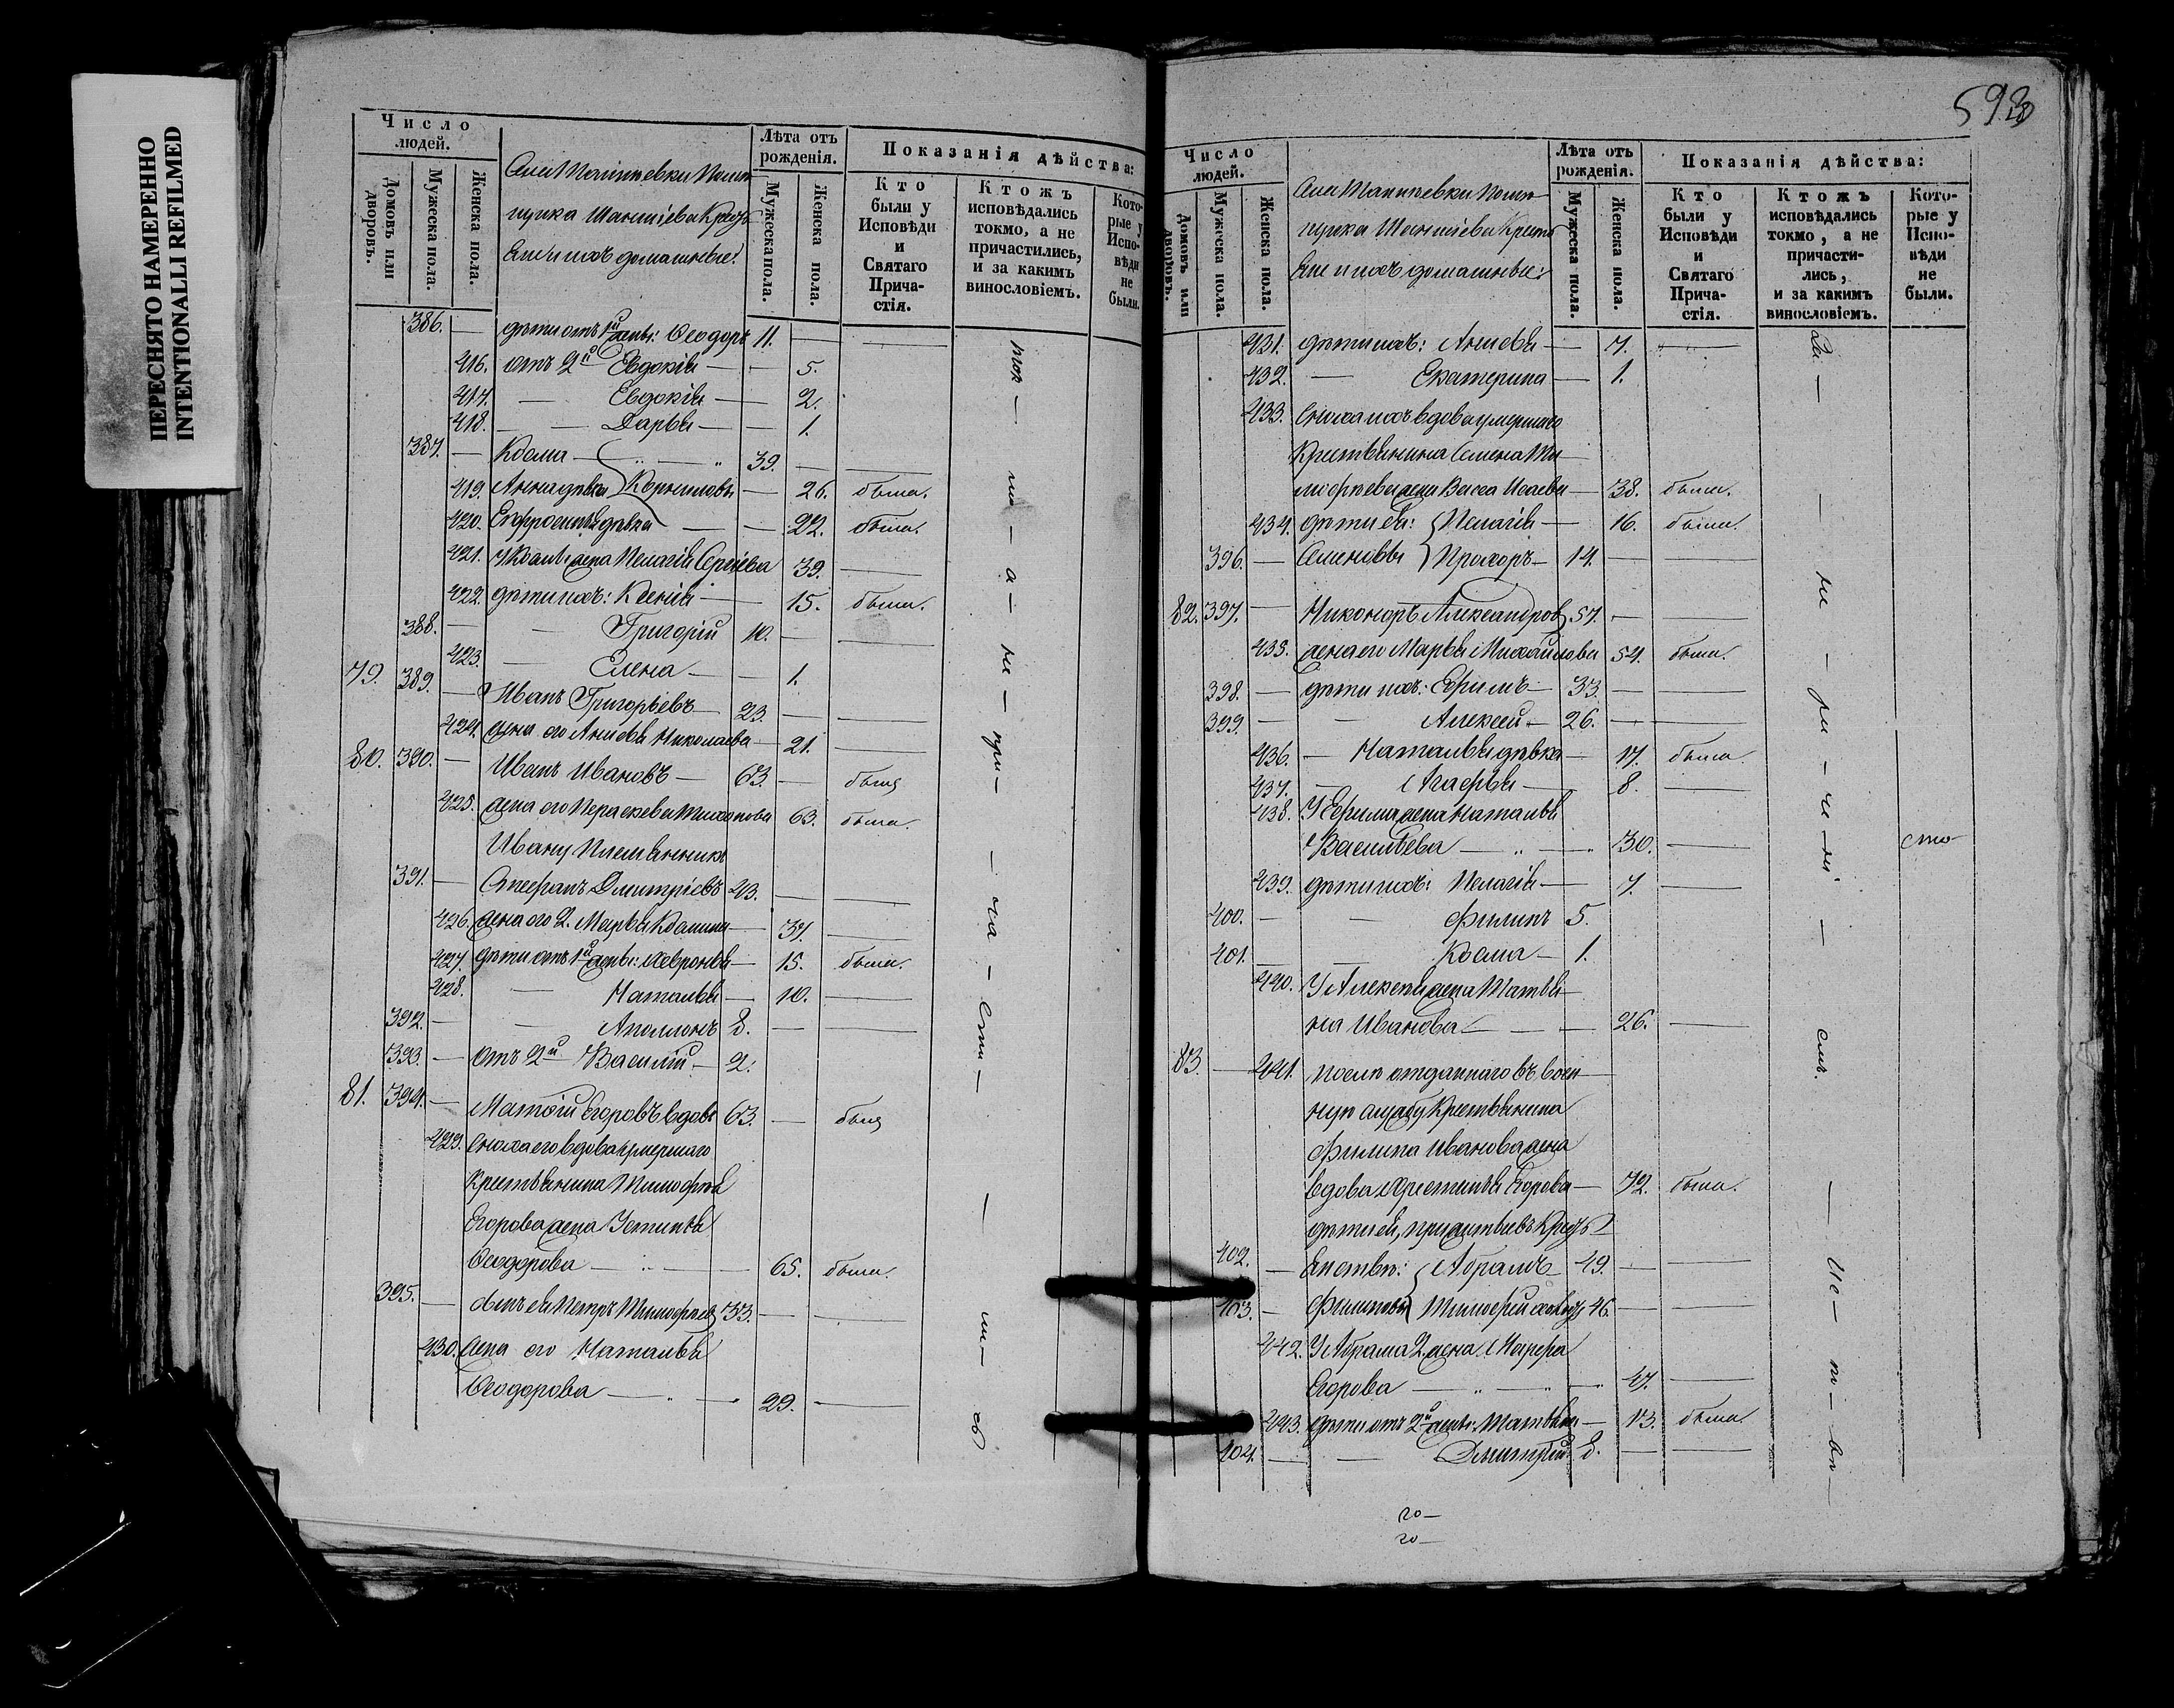 ПЕРЕСНЯТО НАМЕРЕННО
INTENTIONALLI REFILMED
Число людей.
Домовъ или дворовъ.
Мужеска пола.
Женска пола.
помѣ
щика
и ихъ домашніе:
Лѣта отъ рожденія.
Мужеска пола.
Женска пола.
Показанія дѣйства:
Кто были у Исповѣди и Святаго Причастія.
Ктожъ исповѣдались токмо, а не причастились, и за какимъ винословіемъ.
Которые у Исповѣди не были.
386. — дѣти отъ 1й жены: Ѳеодоръ 11. —
416. отъ 2й Евдокія — 5.
417. — Евдокія — 2.
418. — Дарья — 1.
387. — Козма — 39. —
419. Анна дѣвка Корниловы — 26. была.
420. Евфросинія дѣвка — 22. была.
421. У Козмы жена Пелагія Сергіева 39. —
422. дѣти ихъ: Ксенія — 15. была.
388. — Григорій 10. —
423. — Елена — 1.
79. 389. — Иванъ Григорьевъ 23. —
424. жена его Анисья Николаева — 21. —
80. 390. — Иванъ Ивановъ — 63. — былъ
425. жена его Параскева 63. была.
Ивану племянникъ
391. — Стефанъ Дмитріевъ 43. —
426. жена его 2. Марья Козмина — 37. —
427. дѣти отъ 1й жены: Февронья — 15. была.
428. — Наталья — 10. —
392. — Аполлонъ 8. —
393. — отъ 2й Василій — 2.
81. 394. — Матвій Егоровъ вдовъ 63. — былъ
429. Сноха его вдова умершаго
крестьянина Тимофея
Егорова жена Устинья
Ѳеодорова — 65. была.
395. — сынъ ея Петръ Тимофѣевъ 33. —
430. жена его Наталья
Ѳеодорова — 29. —
593
Число людей.
Домовъ или дворовъ.
Мужеска пола.
Женска пола.
помѣ
щика
и ихъ домашніе:
Лѣта отъ рожденія.
Мужеска пола.
Женска пола.
Показанія дѣйства:
Кто были у Исповѣди и Святаго Причастія.
Ктожъ исповѣдались токмо, а не причастились, и за какимъ винословіемъ.
Которые у Исповѣди не были.
431. дѣти ихъ: Анисья — 7. —
432. — Екатерина — 1.
433. Сноха ихъ вдова умершаго
Крестьянина Семена Ти
мофѣева жена Васса Исаева — 38. была.
434. дѣти ея: Пелагія — 16. была.
396. — Семеновы Прохоръ — 14. —
82. 397. — Никоноръ Александровъ 57. —
435. жена его Марья Михайлова 54. была.
398. — дѣти ихъ: Ефимъ — 33. —
399. — Алексѣй — 26. —
436. — Наталья дѣвка — 17. была.
437. — Агафья — 8. —
438. У Ефима жена Наталья
Васильева — 30. —
439. дѣти ихъ: Пелагія — 7. —
400. — Филипъ 5.
401. — Козма — 1.
440. У Алексѣя жена Татья
на Иванова — 26. —
83. — 441. послѣ отданнаго въ воен
ную службу крестьянина
Филипа Иванова жена
вдова Христинья Егорова — 72. была.
402. — Абрамъ — 49. —
403. — Филиповы Тимофей холостъ 46. —
442. У Абрама 2. жена
Егорова — 47. —
443. дѣти отъ 2й жены: Татьяна — 13. была.
404. — Дмитрій 8. —